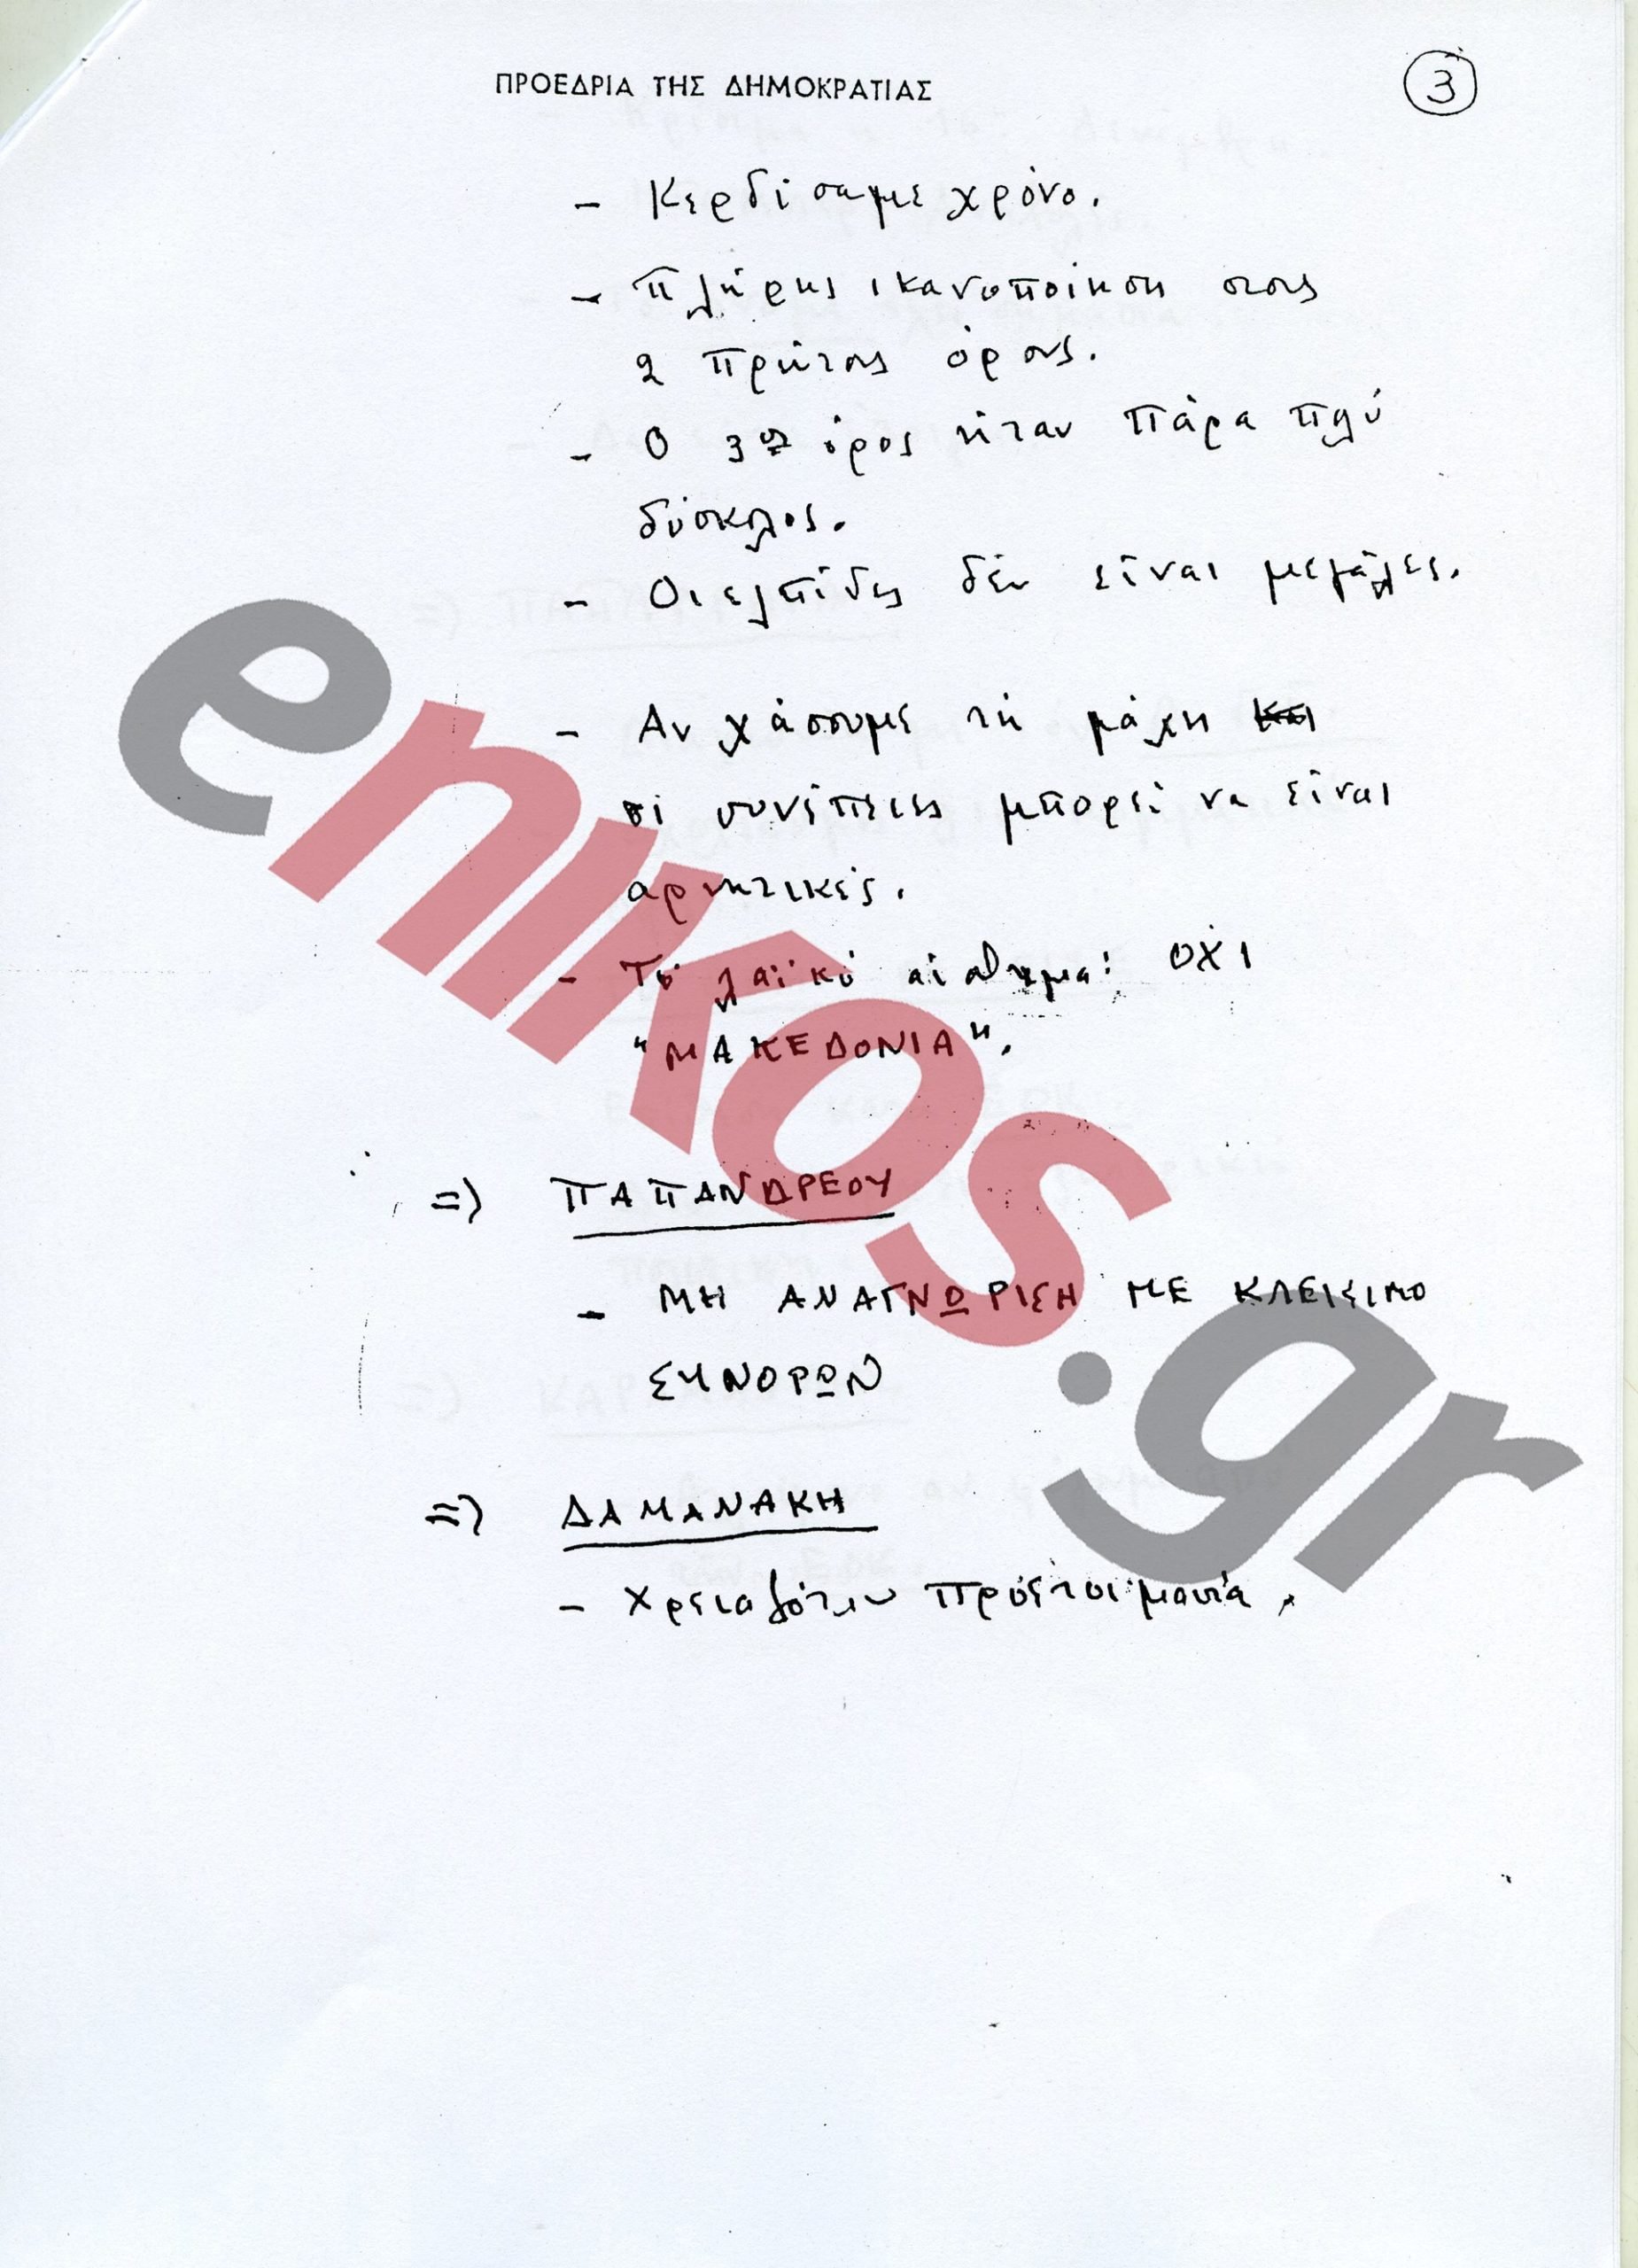 ΠΡΟΕΔΡΙΑ ΤΗΣ ΔΗΜΟΚΡΑΤΙΑΣ
3
- Κερδίσαμε χρόνο.
- Πλήρης ικανοποίηση στους
2 πρώτους όρους.
- Ο 3ος όρος ήταν πάρα πολύ
δύσκολος.
- Οι ελπίδες δέν είναι μεγάλες.
- Αν χάσουμε τή μάχη και
οι συνέπειες μπορεί να είναι
αρνητικές.
- Τό λαϊκό αίσθημα: ΟΧΙ
"ΜΑΚΕΔΟΝΙΑ".
=> ΠΑΠΑΝΔΡΕΟΥ
- ΜΗ ΑΝΑΓΝΩΡΙΣΗ ΜΕ ΚΛΕΙΣΙΜΟ
ΣΥΝΟΡΩΝ
=> ΔΑΜΑΝΑΚΗ
- Χρειαζόταν προετοιμασία.
enikos.gr